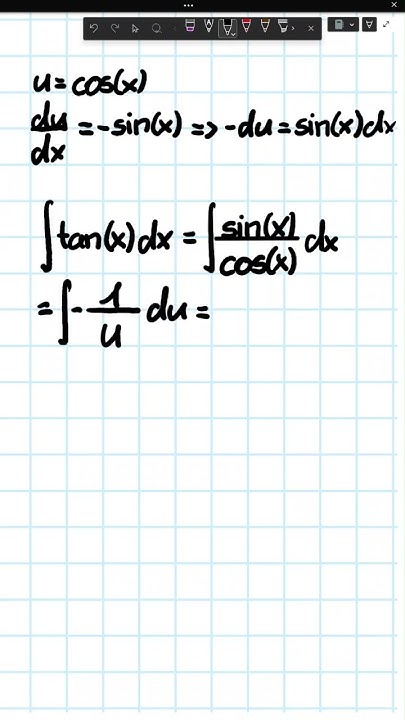 u = cos(x)
du/dx = -sin(x) => -du = sin(x)dx
∫tan(x)dx = ∫sin(x)/cos(x) dx
= ∫-1/u du =